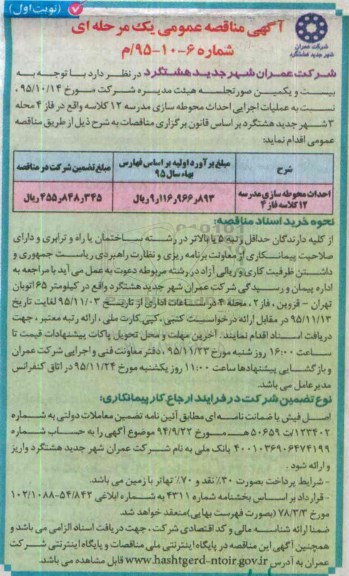 (نوبت اول)
آگهی مناقصه عمومی یک مرحله ای
شماره ۶-۱۰-۹۵/م
شرکت عمران
شهر جدید هشتگرد
شرکت عمران شهر جدید هشتگرد در نظر دارد با توجه به
بیست و یکمین صورتجلسه هیئت مدیره شرکت مورخ ۹۵/۱۰/۱۴
نسبت به عملیات اجرایی احداث محوطه سازی مدرسه ۱۲ کلاسه واقع در فاز ۴ محله
۳ شهر جدید هشتگرد بر اساس قانون برگزاری مناقصات به شرح ذیل از طریق مناقصه
عمومی اقدام نماید:
شرح
مبلغ برآورد اولیه بر اساس فهارس بهاء سال ۹۵
مبلغ تضمین شرکت در مناقصه
احداث محوطه سازی مدرسه ۱۲ کلاسه فاز ۴
۹٫۱۱۶٫۹۶۶٫۸۹۳ ریال
۴۵۵٫۸۴۸٫۳۴۵ ریال
نحوه خرید اسناد مناقصه:
از کلیه دارندگان حداقل رتبه ۵ یا بالاتر در رشته ساختمان یا راه و ترابری و دارای
صلاحیت پیمانکاری از معاونت برنامه ریزی و نظارت راهبردی ریاست جمهوری و
داشتن ظرفیت کاری و ریالی آزاد در رشته مربوطه دعوت به عمل می آید با مراجعه به
اداره پیمان و رسیدگی شرکت عمران شهر جدید هشتگرد واقع در کیلومتر ۶۵ اتوبان
تهران - قزوین، فاز ۲، محله ۴ در ساعات اداری از تاریخ ۹۵/۱۱/۰۳ لغایت تاریخ
۹۵/۱۱/۱۳ در مقابل ارائه درخواست کتبی، کپی کارت ملی، ارائه رتبه معتبر، جهت
دریافت اسناد اقدام نمایند. آخرین مهلت و محل تحویل پاکات پیشنهادات قیمت تا
ساعت ۱۶:۰۰ روز شنبه مورخ ۹۵/۱۱/۲۳، دفتر معاونت فنی و اجرایی شرکت عمران
و بازگشایی پیشنهادها ساعت ۱۱:۰۰ روز یکشنبه مورخ ۹۵/۱۱/۲۴ در اتاق کنفرانس
مدیر عامل می باشد.
نوع تضمین شرکت در فرایند ارجاع کار پیمانکاری:
اصل فیش یا ضمانت نامه ای مطابق آئین نامه تضمین معاملات دولتی به شماره
۱۲۳۴۰۲/ت ۵۰۶۵۹ هـ مورخ ۹۴/۹/۲۲ موضوع آگهی را به حساب شماره
۴۰۰۱۰۳۶۹۰۶۴۷۴۱۹۹ بانک ملی به نام شرکت عمران شهر جدید هشتگرد واریز
و ارائه شود.
- شرایط پرداخت بصورت ۳۰٪ نقد و ۷۰٪ تهاتر با زمین می باشد.
- قرارداد بر اساس بخشنامه شماره ۴۳۱۱ به شماره ابلاغی ۵۴/۸۴۲-۱۰۲/۱۰۸۸
مورخ ۷۸/۳/۳ (بصورت فهرست بهایی) منعقد خواهد شد.
ضمنا ارائه شناسه مالی و کد اقتصادی شرکت، جهت دریافت اسناد الزامی می باشد و
همچنین آگهی این مناقصه در پایگاه اینترنتی ملی مناقصات و پایگاه اینترنتی شرکت
عمران به آدرس www.hashtgerd-ntoir.gov.ir قابل مشاهده می باشد.